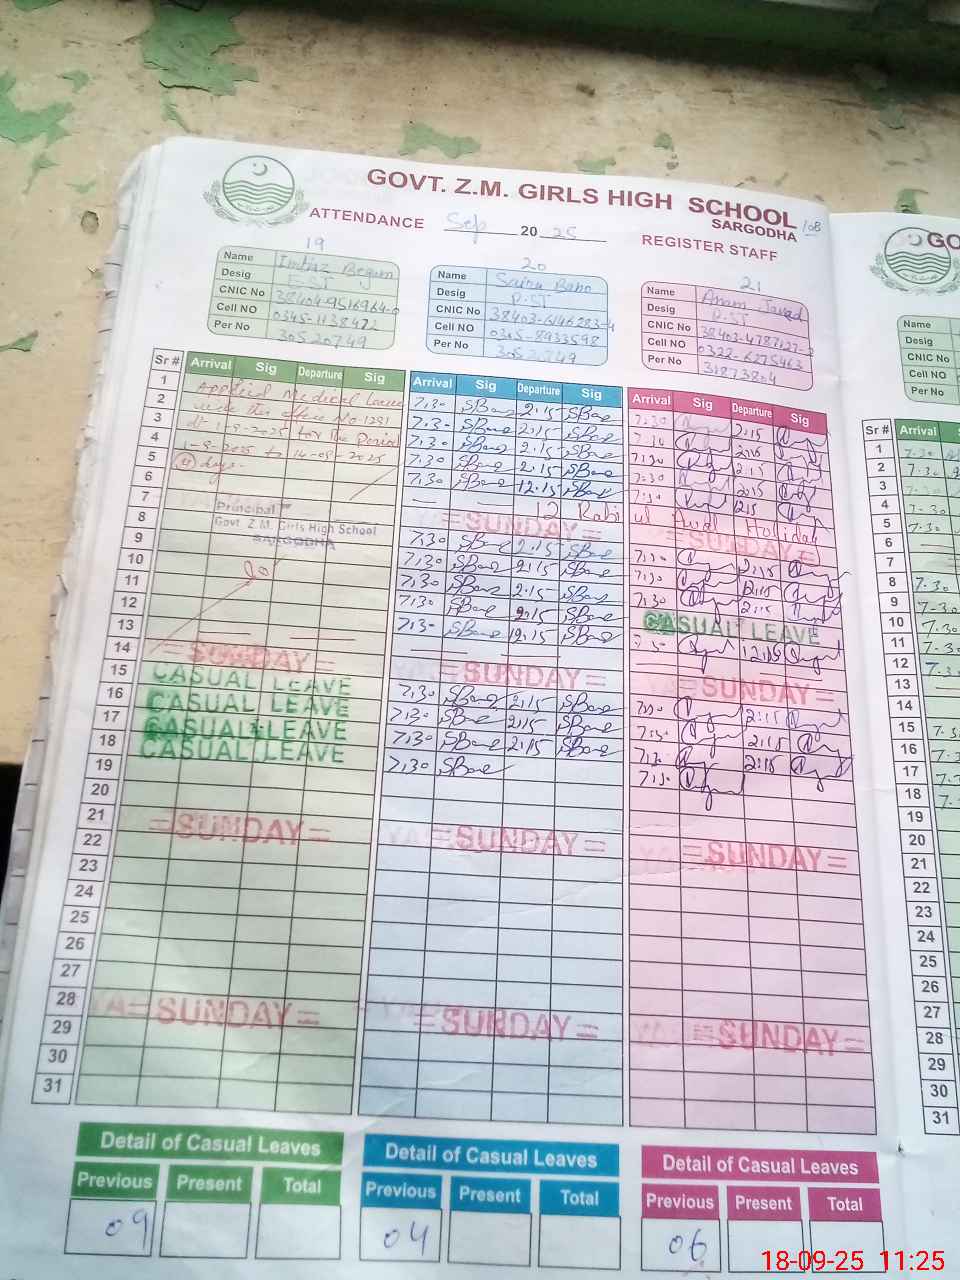 GOVT. Z.M. GIRLS HIGH SCHOOL
SARGODHA
108
ATTENDANCE Sep 20 25 REGISTER STAFF
19
Name Imtiaz Begum
Desig
CNIC No 38404-9516964-0
Cell NO 0345-1138472
Per No 30520749
20
Name Saira Bano
Desig P.ST
CNIC No 38403-6146283-4
Cell NO 0305-8933598
Per No 30520749
21
Name Anam Javed
Desig P.ST
CNIC No 38403-4787127-2
Cell NO 0322-6275463
Per No 31873804
Sr # Arrival Sig Departure Sig Arrival Sig Departure Sig Arrival Sig Departure Sig
1 Applied Medical Leave 7,30 SBano 2:15 SBano 7:30 2:15
2 vide this office No 1291 7,30 SBano 2:15 SBano 7:30 2:15
3 dt 1-9-2025 for the period 7,30 SBano 2:15 SBano 7:30 2:15
4 1-9-2025 to 14-09-2025 7,30 SBano 2:15 SBano 7:30 2:15
5 days. 7,30 SBano 12.15 SBano 7:30 12:15
6 12 Rabi ul Awal Holiday
7 =SUNDAY= =SUNDAY=
Principal
Govt. Z.M. Girls High School
SARGODHA
8 7,30 SBano 2:15 SBano 7:30 2:15
9 7,30 SBano 2:15 SBano 7:30 2:15
10 7,30 SBano 2:15 SBano 7:30 2:15
11 7,30 SBano 2:15 SBano CASUAL LEAVE
12 7,30 SBano 12:15 SBano 12:15
13
14 =SUNDAY= =SUNDAY= =SUNDAY=
15 CASUAL LEAVE 7,30 SBano 2:15 SBano 7:30 2:15
16 CASUAL LEAVE 7,30 SBano 2:15 SBano 7:30 2:15
17 CASUAL LEAVE 7,30 SBano 2:15 SBano 7:30 2:15
18 CASUAL LEAVE 7,30 SBano 7:30
19
20
21 =SUNDAY= =SUNDAY= =SUNDAY=
22
23
24
25
26
27
28 =SUNDAY= =SUNDAY= =SUNDAY=
29
30
31
Detail of Casual Leaves Detail of Casual Leaves Detail of Casual Leaves
Previous Present Total Previous Present Total Previous Present Total
09 04 06
GO
Name
Desig
CNIC No
Cell NO
Per No
Sr # Arrival
1 7:30
2 7.30
3
4 7-30
5 7-30
6
7
8 7.30
9 7-30
10 7.30
11 7.30
12 7.30
13
14
15
16
17
18
19
20
21
22
23
24
25
26
27
28
29
30
31
18-09-25 11:25